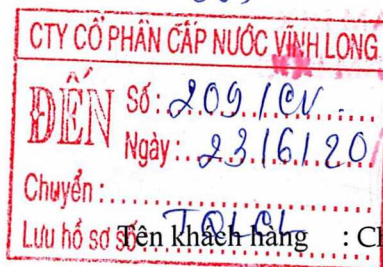 CTY CỔ PHẦN CẤP NƯỚC VĨNH LONG
ĐẾN
Số: 209/CV
Ngày: 23/6/20
Chuyển:
Lưu hồ sơ số:
Tên khách hàng : Ch